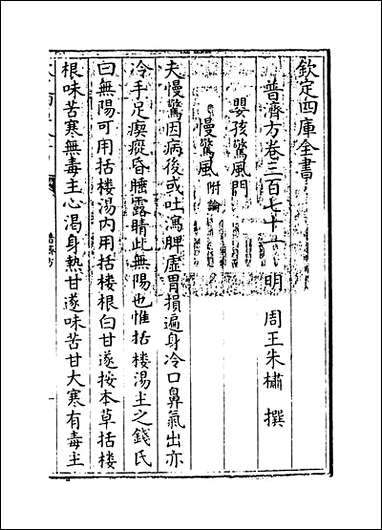 欽定四庫全書
普濟方卷三百七十一 明 周王朱橚 撰
嬰孩驚風門
慢驚風附論
夫慢驚因病後或吐瀉脾虛胃損遍身冷口鼻氣出亦
冷手足瘈瘲昏睡露睛此無陽也惟括樓湯主之錢氏
曰無陽可用括樓湯内用括樓根白甘遂按本草括樓
根味苦寒無毒主心渴身熱甘遂味苦甘大寒有毒主
普濟方